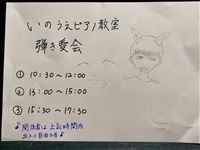 いのうえピアノ教室
弾き愛会
① 10:30〜12:00
② 13:00〜15:00
③ 15:30〜17:30
♪関係者は上記時間内
出入り自由です♪